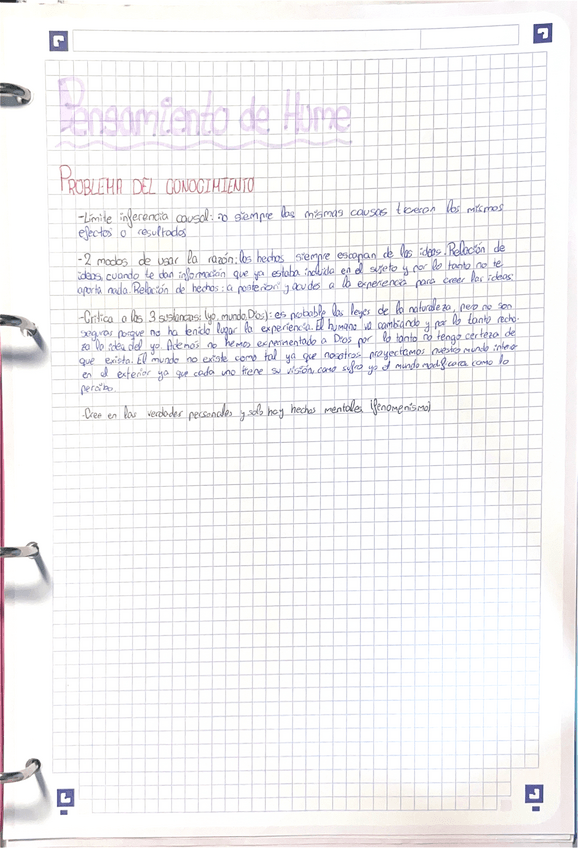 Pensamiento de Hume
PROBLEMA DEL CONOCIMIENTO
-Límite inferencia causal: no siempre las mismas causas tienen los mismos
efectos o resultados
-2 modos de usar la razón: los hechos siempre escapan de las ideas. Relación de
ideas, cuando te dan información que ya estaba incluida en el sujeto y por lo tanto no te
aporta nada. Relación de hechos: a posteriori y acudes a la experiencia para creer las ideas.
-Crítica a las 3 sustancias (yo, mundo, Dios): es probable las leyes de la naturaleza, pero no son
seguras porque no ha tenido lugar la experiencia. El humano va cambiando y por lo tanto recha-
za la idea del yo. Además no hemos experimentado a Dios por lo tanto no tengo certeza de
que exista. El mundo no existe como tal ya que nosotros proyectamos nuestro mundo interior
en el exterior ya que cada uno tiene su visión, como sufro yo el mundo modificara como lo
percibo.
-Cree en las verdades personales y solo hay hechos mentales (fenomenismo)